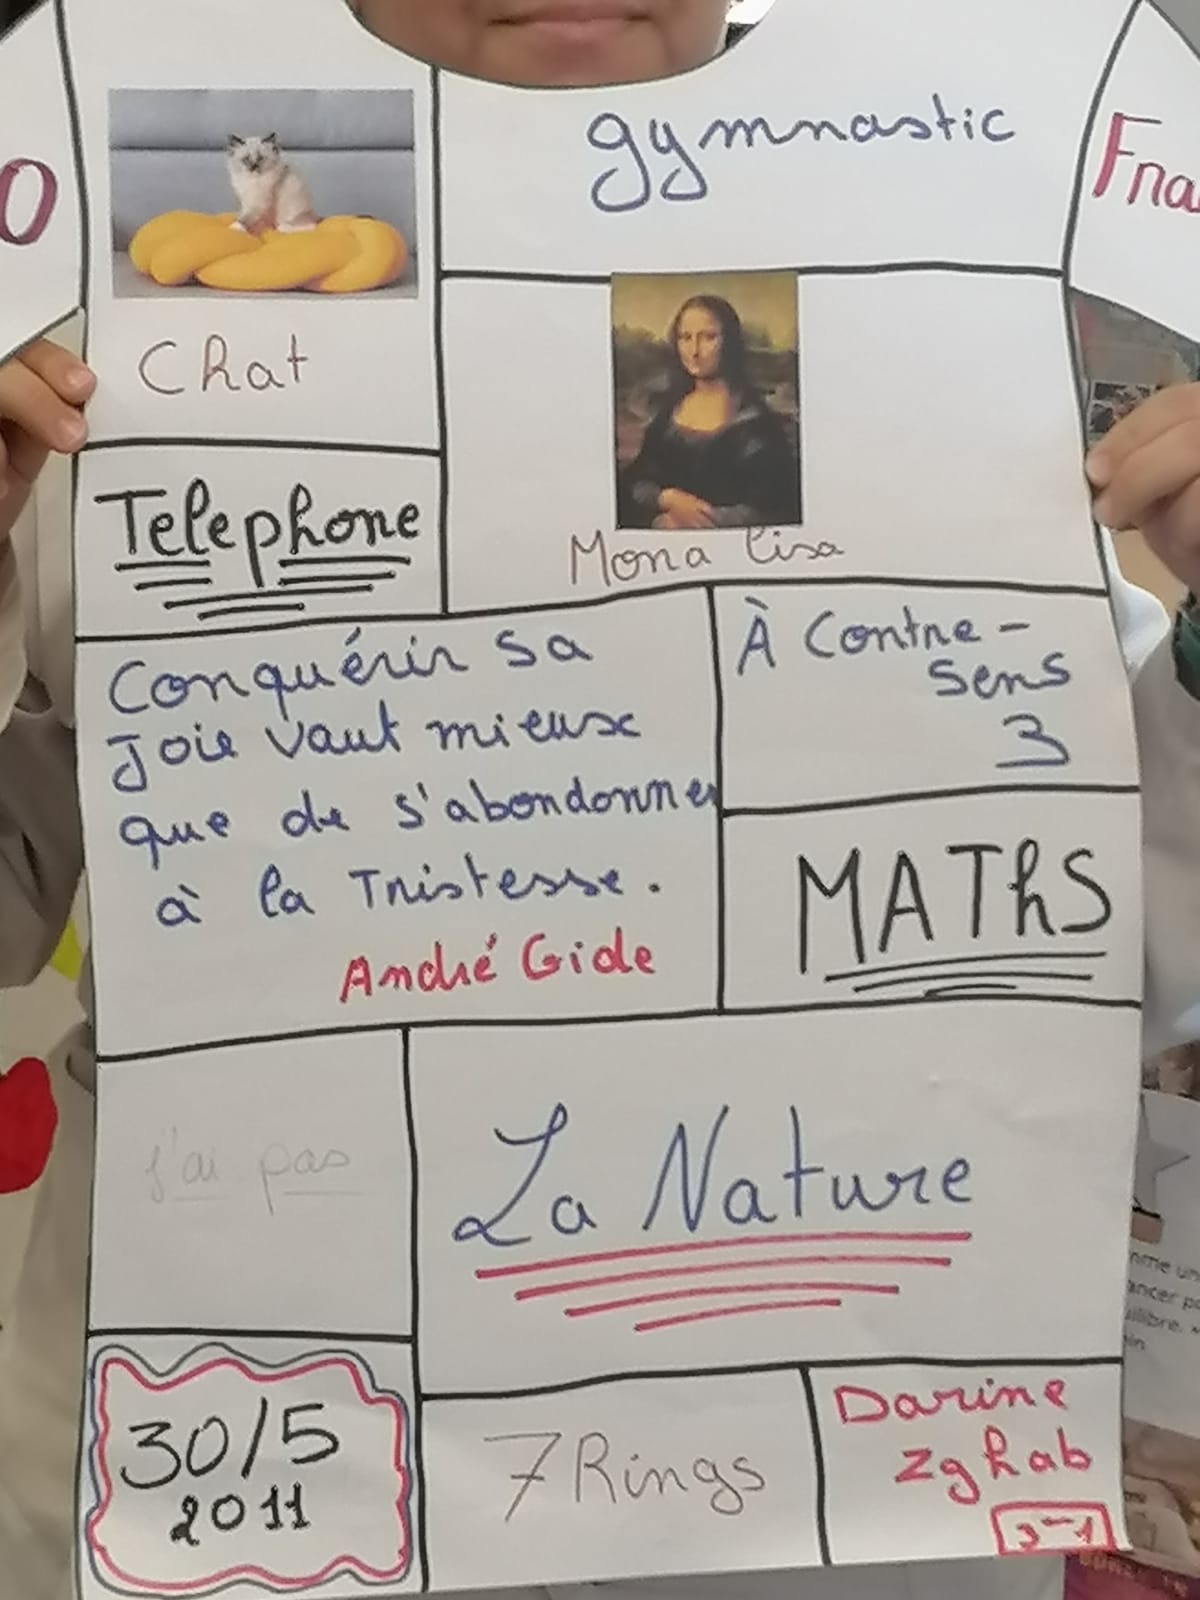 O
Chat
gymnastic
Telephone
Mona lisa
Conquérir sa
Joie vaut mieux
que de s'abondonner
à la Tristesse.
André Gide
À Contre-
Sens
3
MAThS
j'ai pas
La Nature
30/5
2011
7 Rings
Darine
Zghab